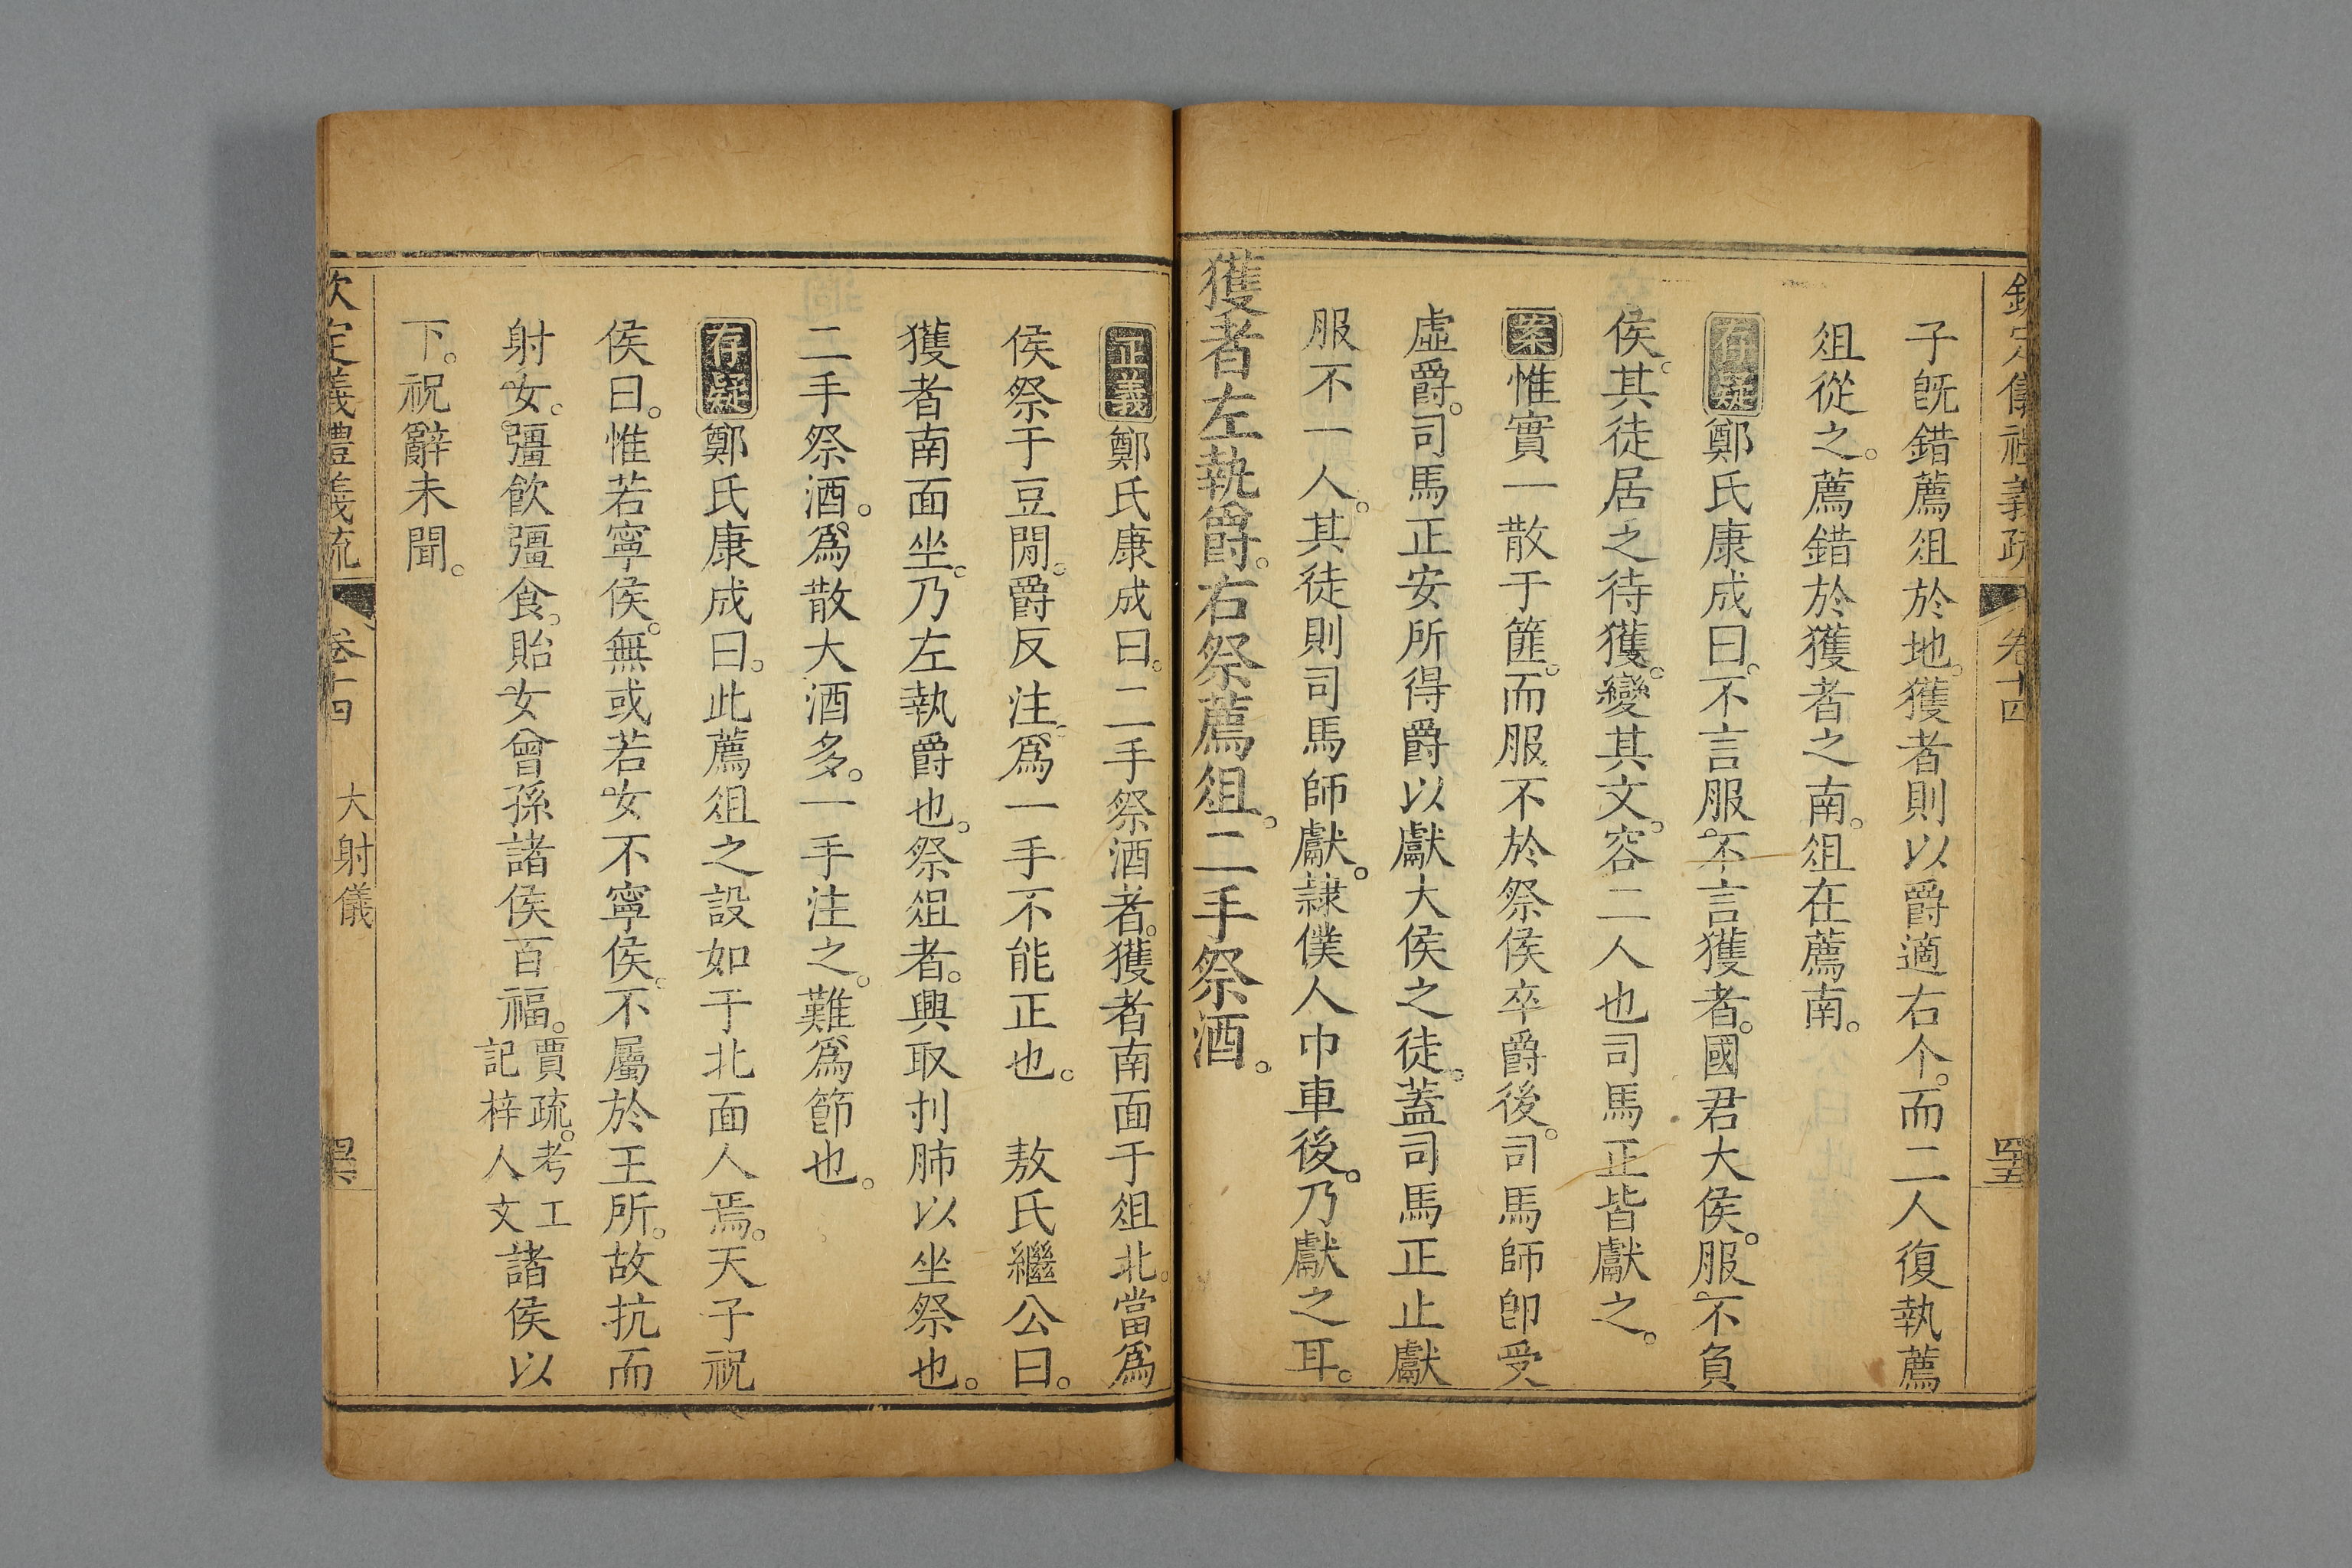 欽定儀禮義疏 卷十四 罣
子旣錯薦俎於地。獲者則以爵適右个。而二人復執薦
俎從之。薦錯於獲者之南。俎在薦南。
存疑鄭氏康成曰。不言服不。言獲者。國君大侯。服不負
侯。其徒居之待獲。變其文。容二人也司馬正皆獻之。
案惟實一散于篚。而服不於祭侯卒爵後。司馬師卽受
虛爵。司馬正安所得爵以獻大侯之徒。蓋司馬正止獻
服不一人。其徒則司馬師獻。隷僕人巾車後。乃獻之耳。
獲者左執爵。右祭薦俎。二手祭酒。
正義鄭氏康成曰。二手祭酒者。獲者南面于俎北。當爲
侯祭于豆閒。爵反注。爲一手不能正也。 敖氏繼公曰。
獲者南面坐。乃左執爵也。祭俎者。興取刌肺以坐祭也。
二手祭酒。爲散大酒多。一手注之。難爲節也。
存疑鄭氏康成曰。此薦俎之設如于北面人焉。天子祝
侯曰。惟若寧侯。無或若女不寧侯。不屬於王所。故抗而
射女。彊飮彊食。貽女曾孫諸侯百福。賈疏。考工記梓人文諸侯以
下。祝辭未聞。
欽定儀禮義疏 卷十四 大射儀